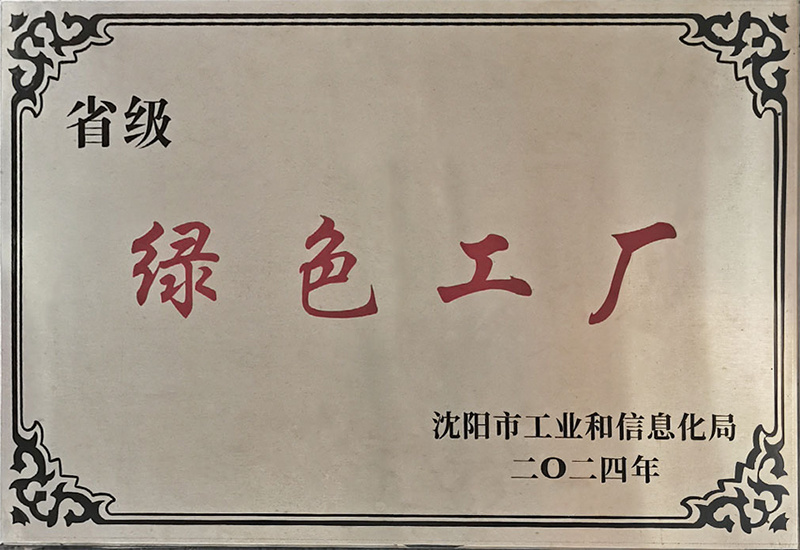 省级
绿色工厂
沈阳市工业和信息化局
二〇二四年